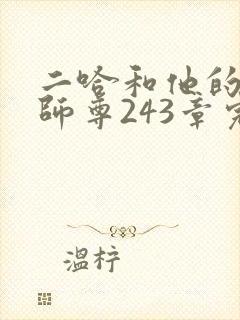 二哈和他的
師尊243章完
溫柠